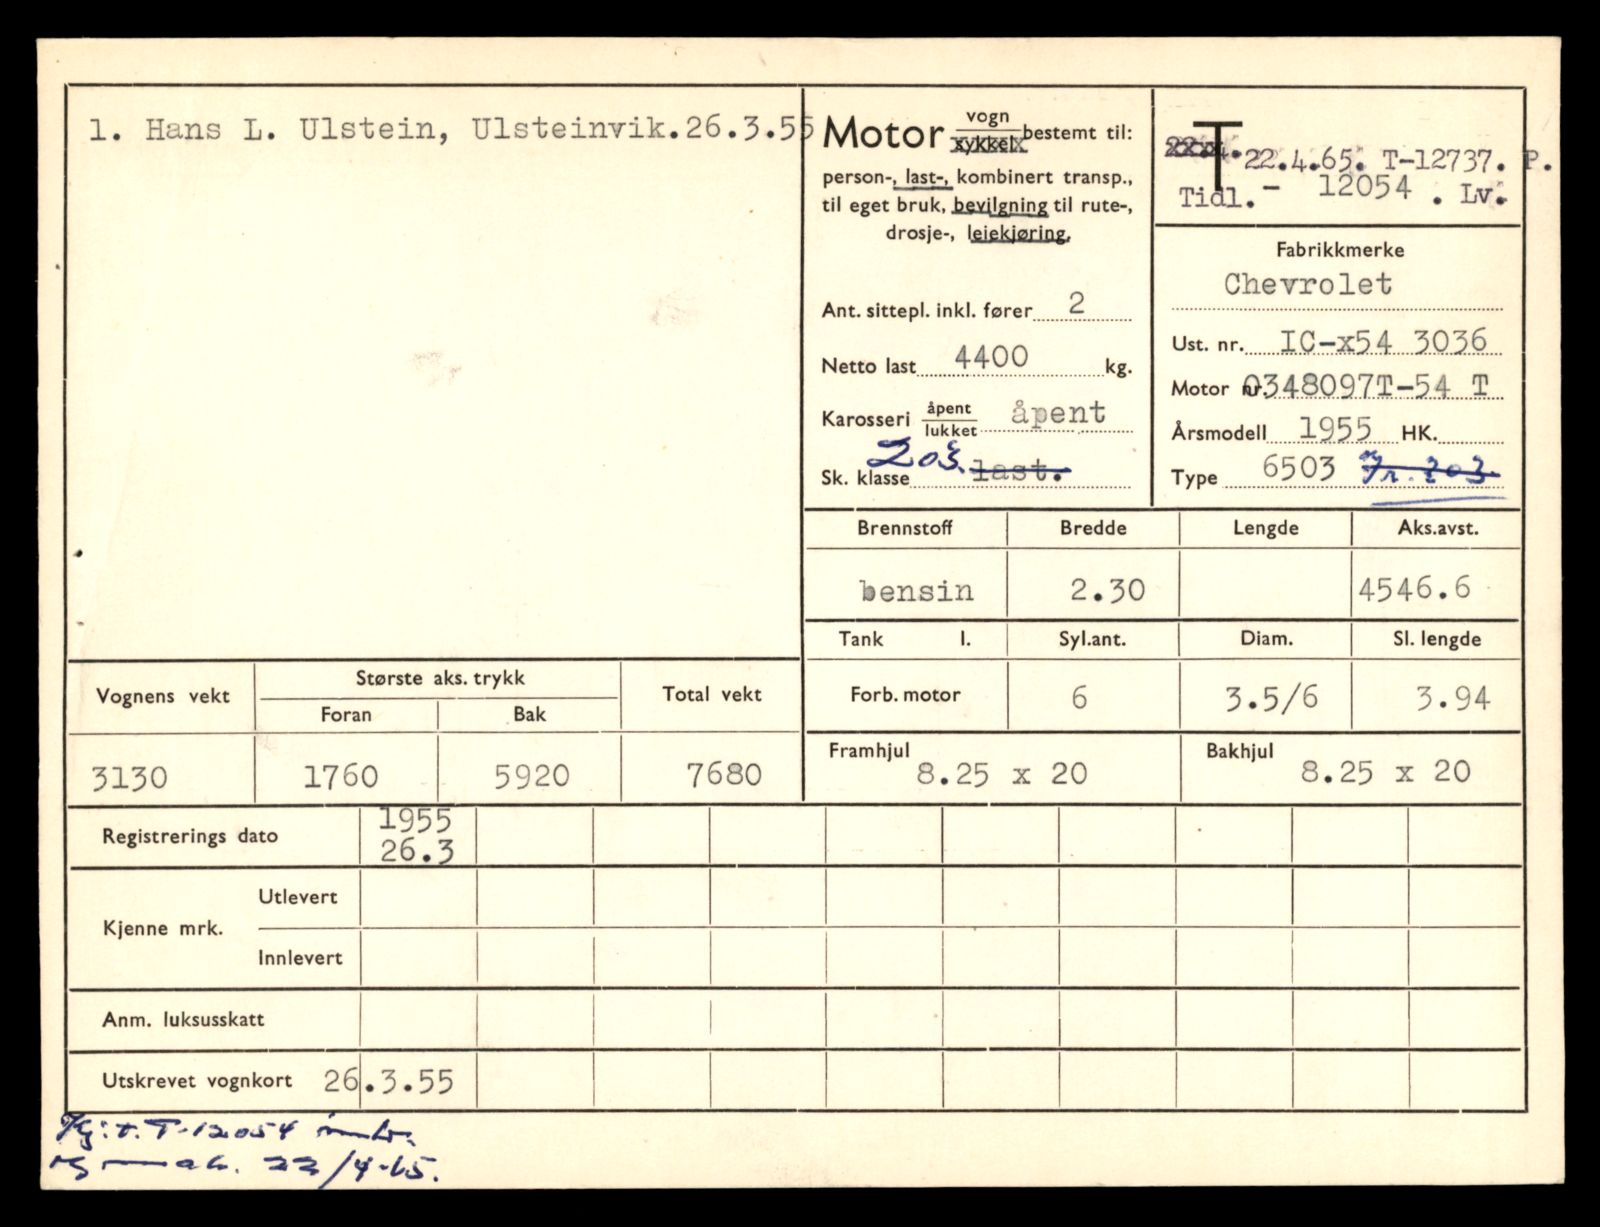 1. Hans L. Ulstein, Ulsteinvik.26.3.55
Motor vogn sykkel bestemt til:
person-, last-, kombinert transp.,
til eget bruk, bevilgning til rute-,
drosje-, leiekjøring.
Ant. sittepl. inkl. fører 2
Netto last 4400 kg.
Karosseri åpent lukket åpent
Sk. klasse 203. last.
T 22.4.65. T-12737. P.
Tidl.- 12054 . Lv.
Fabrikkmerke
Chevrolet
Ust. nr. IC-x54 3036
Motor nr. 0348097T-54 T
Årsmodell 1955 HK.
Type 6503 Nr. 203
Brennstoff Bredde Lengde Aks.avst.
bensin 2.30 4546.6
Tank l. Syl.ant. Diam. Sl. lengde
Forb. motor 6 3.5/6 3.94
Framhjul 8.25 x 20 Bakhjul 8.25 x 20
Vognens vekt Største aks. trykk Total vekt
Foran Bak
3130 1760 5920 7680
Registrerings dato 1955
26.3
Kjenne mrk. Utlevert
Innlevert
Anm. luksusskatt
Utskrevet vognkort 26.3.55
Kj: t. T-12054
22/4-65.